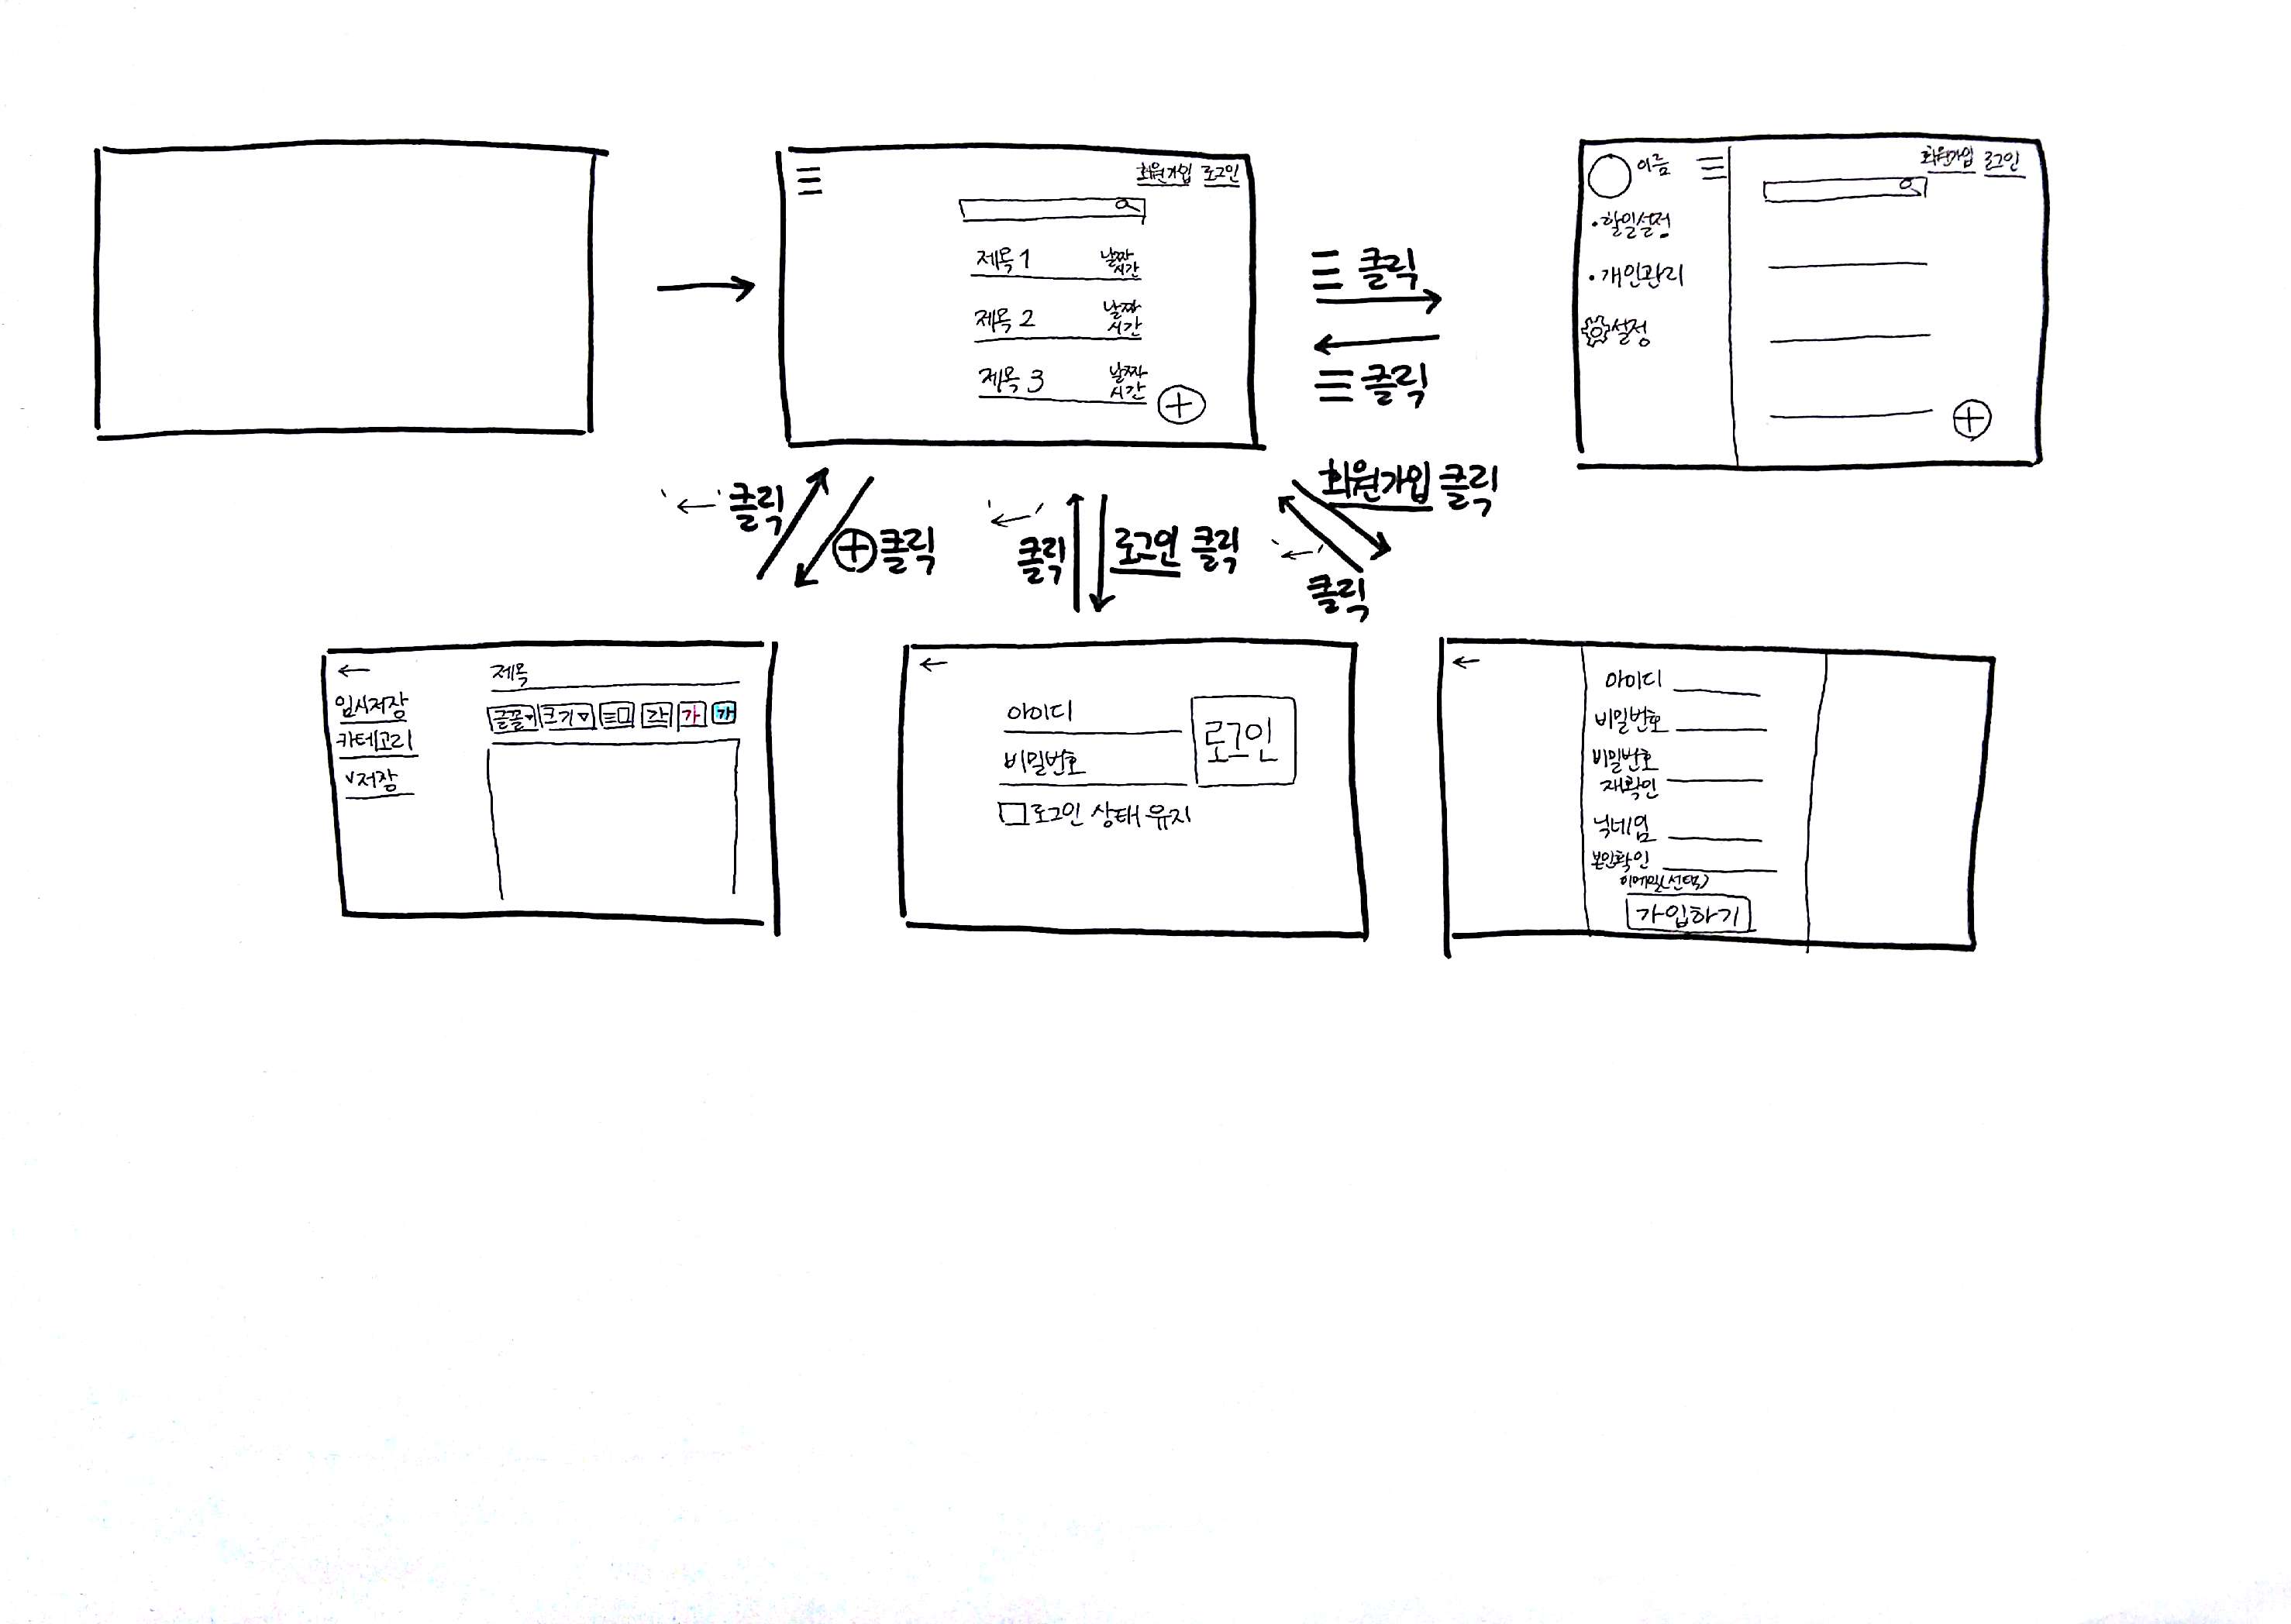 회원가입 로그인
제목 1 날짜
시간
제목 2 날짜
시간
제목 3 날짜
시간
클릭
클릭
이름
회원가입 로그인
•할일설정
•개인관리
설정
'←' 클릭
클릭
'←'
클릭
로그인 클릭
회원가입 클릭
'←'
클릭
←
임시저장
카테고리
v저장
제목
글꼴 크기 가 가 가
←
아이디
비밀번호
로그인
로그인 상태 유지
←
아이디
비밀번호
비밀번호
재확인
닉네임
본인확인
이메일(선택)
가입하기